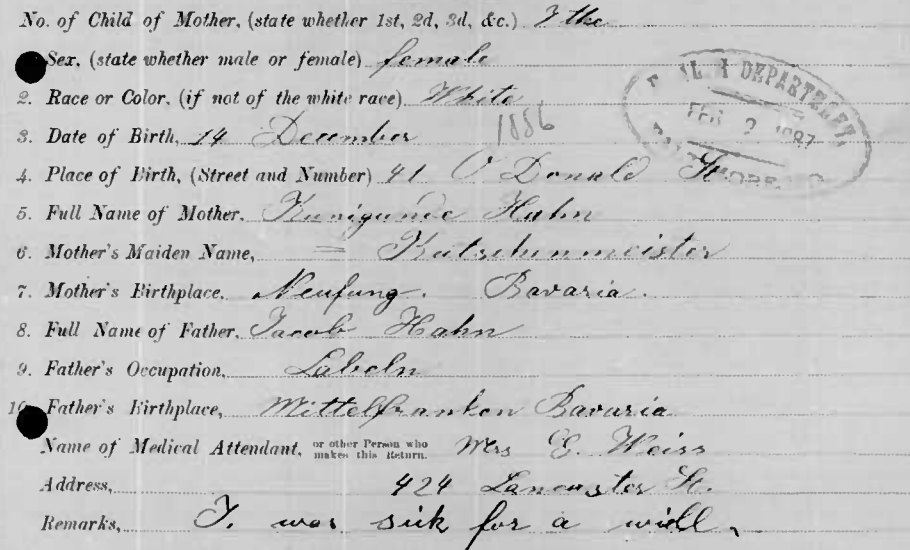 No. of Child of Mother, (state whether 1st, 2d, 3d, &c.) 7 the
Sex, (state whether male or female) female
2. Race or Color, (if not of the white race) White
3. Date of Birth, 14 December 1886
4. Place of Birth, (Street and Number) 41 O Donald St
5. Full Name of Mother, Kunigunde Hahn
6. Mother's Maiden Name, = Kutschenmeister
7. Mother's Birthplace, Neufung. Bavaria.
8. Full Name of Father, Jacob Hahn
9. Father's Occupation, Labeln
10. Father's Birthplace, Mittelfranken Bavaria
Name of Medical Attendant, or other Person who makes this Return. Mrs E. Weiss
Address, 424 Lancaster St.
Remarks, I. was sick for a will.
DEPARTMENT
FEB 2 1887